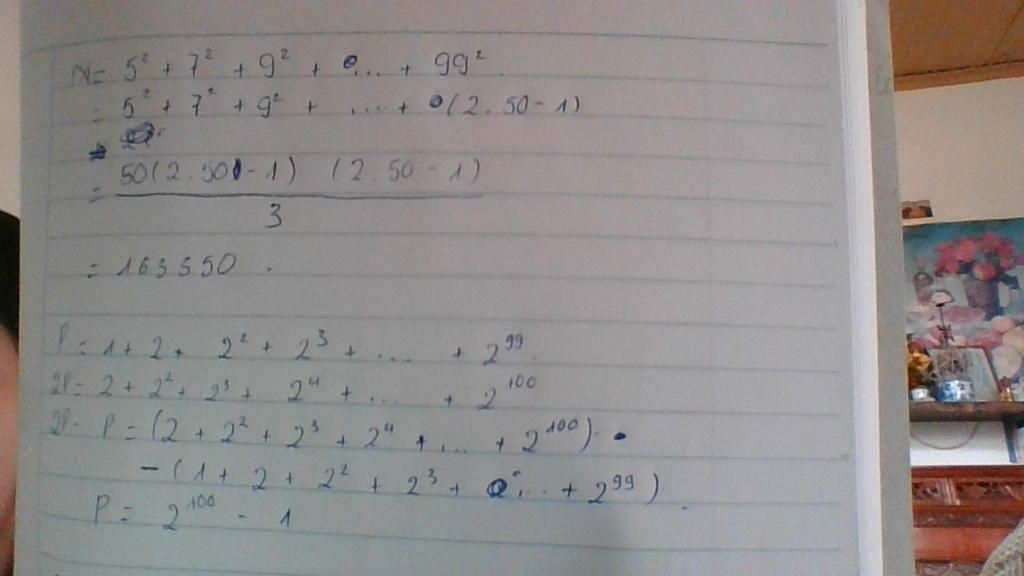 N = 5² + 7² + 9² + .... + 99².
= 5² + 7² + 9² + .... + (2.50 - 1)
= 50(2.50 - 1) (2.50 - 1)
3
= 163350 .
P = 1 + 2 + 2² + 2³ + .... + 2⁹⁹.
2P = 2 + 2² + 2³ + 2⁴ + .... + 2¹⁰⁰
2P - P = (2 + 2² + 2³ + 2⁴ + ... + 2¹⁰⁰).
- (1 + 2 + 2² + 2³ + ... + 2⁹⁹).
P = 2¹⁰⁰ - 1